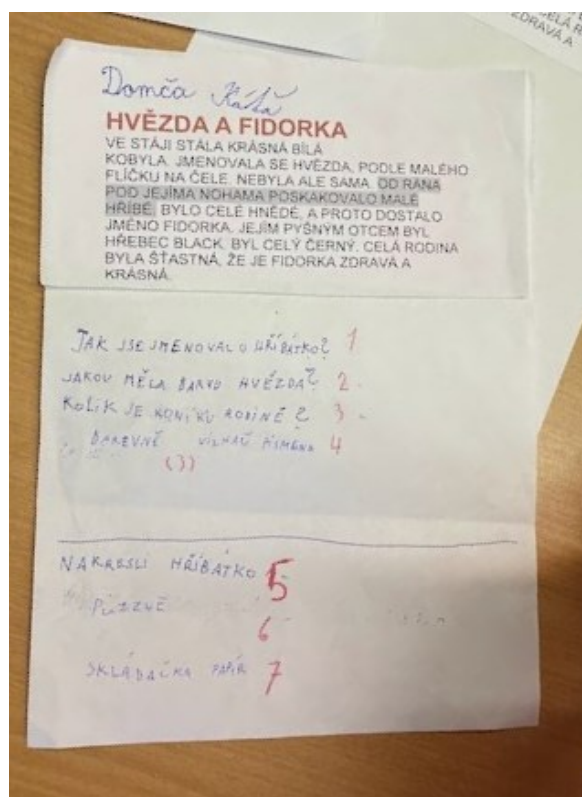 CELÁ R
ZDRAVÁ A
Domča Káťa
HVĚZDA A FIDORKA
VE STÁJI STÁLA KRÁSNÁ BÍLÁ
KOBYLA. JMENOVALA SE HVĚZDA, PODLE MALÉHO
FLÍČKU NA ČELE. NEBYLA ALE SAMA. OD RÁNA
POD JEJÍMA NOHAMA POSKAKOVALO MALÉ
HŘÍBĚ, BYLO CELÉ HNĚDÉ, A PROTO DOSTALO
JMÉNO FIDORKA. JEJÍM PYŠNÝM OTCEM BYL
HŘEBEC BLACK. BYL CELÝ ČERNÝ. CELÁ RODINA
BYLA ŠŤASTNÁ, ŽE JE FIDORKA ZDRAVÁ A
KRÁSNÁ.
JAK JSE JMENOVALO HŘÍBÁTKO? 1
JAKOU MĚLA BARVU HVĚZDA? 2
KOLIK JE KONÍKU RODINĚ? 3
BAREVNĚ PÍSMENA 4
(3)
NAKRESLI HŘÍBÁTKO 5
PUZZLE
6
SKLÁDAČKA PAPÍR 7